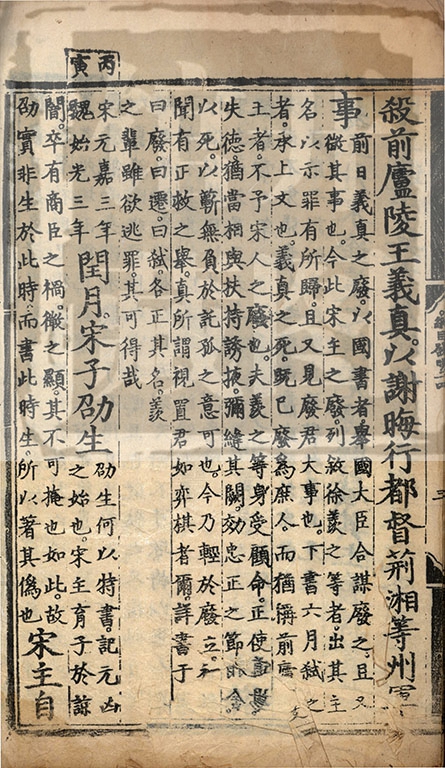 殺前廬陵王義真以謝晦行都督荊湘等州軍
事前日義真之廢以國書者舉國大臣合謀廢之且又
徵其事也今此宋主之廢列敘徐羨之等者出其主
名以示罪有所歸且又見廢君大事也下書六月弒之
者承上文也義真之死既已廢為庶人而猶稱前廬
王者不予宋人之廢也夫羨之等身受顧命正使
失德猶當相與扶持誘掖彌縫其闕効忠正之節
以死以蘄無負於託孤之意可也今乃輕於廢立
聞有正救之舉真所謂視置君如弈棋者爾詳書于
曰廢曰遷曰弒各正其名羨
之輩雖欲逃罪其可得哉
丙寅
宋元嘉三年
魏始光三年
閏月宋子劭生
劭生何以特書記元凶
之始也宋主育子於諒
闇卒有商臣之禍徵之顯其不可掩也如此故
劭實非生於此時而書此時生所以著其偽也
宋主自